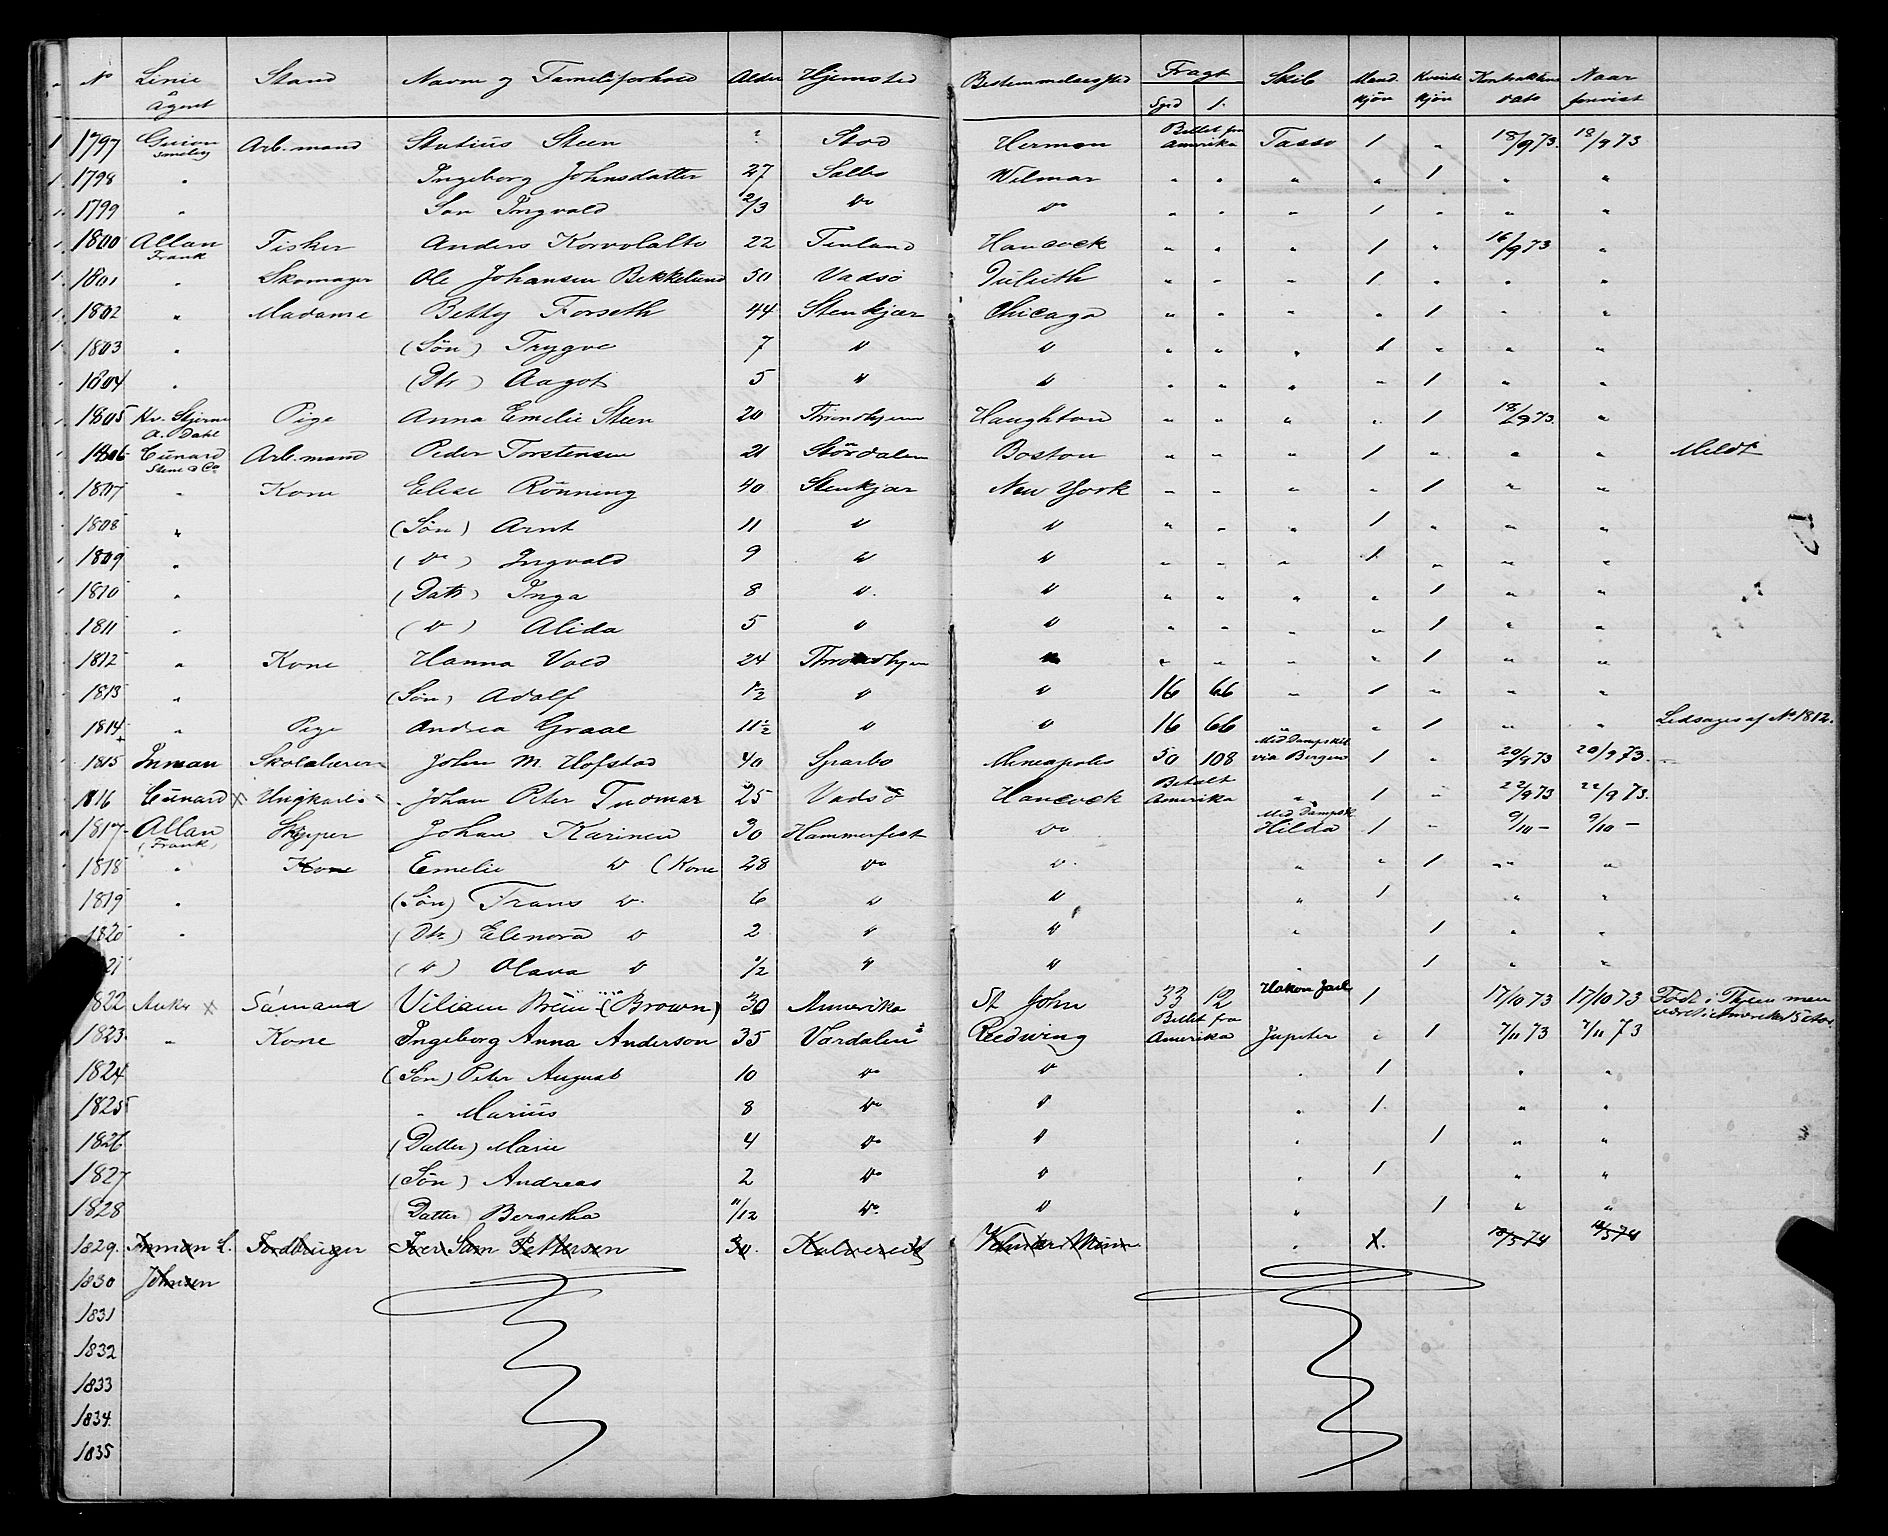 No Linie & Agent Stand Navn og Familieforhold Alder Hjemsted Bestemmelsessted Fragt Spd ß. Skib Mandkjøn Kvindekjøn Kontraktens dato Naar forevist
1 1797 Guion Smeby Arb. mand Statius Steen " Stod Herman Billet fra Amerika Tasso 1 " 18/9 73. 18/9 73
1. 1798 " Ingeborg Johnsdatter 27 Salbo Wilmar " " " " 1 " "
1. 1799 " Søn Ingvald 2/3 do do " " " 1 " " "
1800 Allan Frank Fisker Anders Korvolalto 22 Finland Hancock " " " 1 " 16/9 73 "
1. 1801 " Skomager Ole Johansen Bekkelund 50 Vadsø Duluth " " " 1 " " "
1. 1802 " Madame Betty Forseth 44 Stenkjær Chicago " " " " 1 " "
1. 1803 " (Søn) Trygve 7 do do " " " 1 " " "
1804 " (Dtr) Aagot 5 do do " " " " 1 " "
1805 Hv. Stjerne A. Dahl Pige Anna Emelie Steen 20 Throndhjem Haughton " " " " 1 18/9 73. "
1806 Cunard Stene & Co Arb. mand Peder Torstensen 21 Størdalen Boston " " " 1 " " " Meldt
1807 " Kone Elise Rønning 40 Stenkjær New York " " " " 1 " "
1808 " (Søn) Arnt 11 do do " " " 1 " " "
1809 " (do) Ingvald 9 do do " " " 1 " " "
1810 " (Datr) Inga 8 do do " " " " 1 " "
1811 " (do) Alida 5 do do " " " " 1 " "
1812 " Kone Hanna Vold 24 Throndhjem " " " " 1 " "
1813 " (Søn) Adolf 1 1/2 do do 16 66 " 1 " " "
1814 " Pige Andrea Graae 11 1/2 do do 16 66 " " 1 " " Ledsages af No 1812.
1815 Inman Skolelærer John M. Hofstad 40 Sparbo Mineapolis 50 108 Med Dampskib via Bergen 1 " 20/9 73 20/9 73
1816 Cunard x Ungkarl Johan Peter Tuomar 25 Vadsø Hancock Betalt Amerika " 1 " 22/9 73 22/9 73.
1817 Allan (Frank) Skipper Johan Karinen 30 Hammerfest do Med Dampsk. Hilda 1 " 9/10 – 9/10 –
1818 " Kone Emelie do (Kone 28 do do " " 1 " "
1819 " (Søn) Frans do 6 do do " 1 " "
1820 " (Dtr) Elenora do 2 do do " 1 " "
21 (do) Olava do 1/2 do do " 1 " "
1822 Anker x Sømand Viliam Brun (Brown) 30 Amerika St John 33 12 Hakon Jarl 1 17/10 73 17/10 73 Født i Thjem men været i Amerika 15
1823. " Kone Ingeborg Anna Anderson 35 Værdalen Reedwing Billet fra Amerika Jupiter " 1 7/11 73 7/11 73
1824 (Søn) Peter August 10 do do " 1 " "
1825 " Marius 8 do do " 1. " "
1826 (Datter) Marie 4 do do " 1 " "
1827 (Søn) Andreas 2 do do " 1 " "
1828 (Datter) Bergitha 11/12 do. do " 1 " "
1829. Inman L. Iver Sam Pettersen 30. " X. 18/5 74 18/5 74
1830 Johnsen
1831
1832
1833
1834.
1835